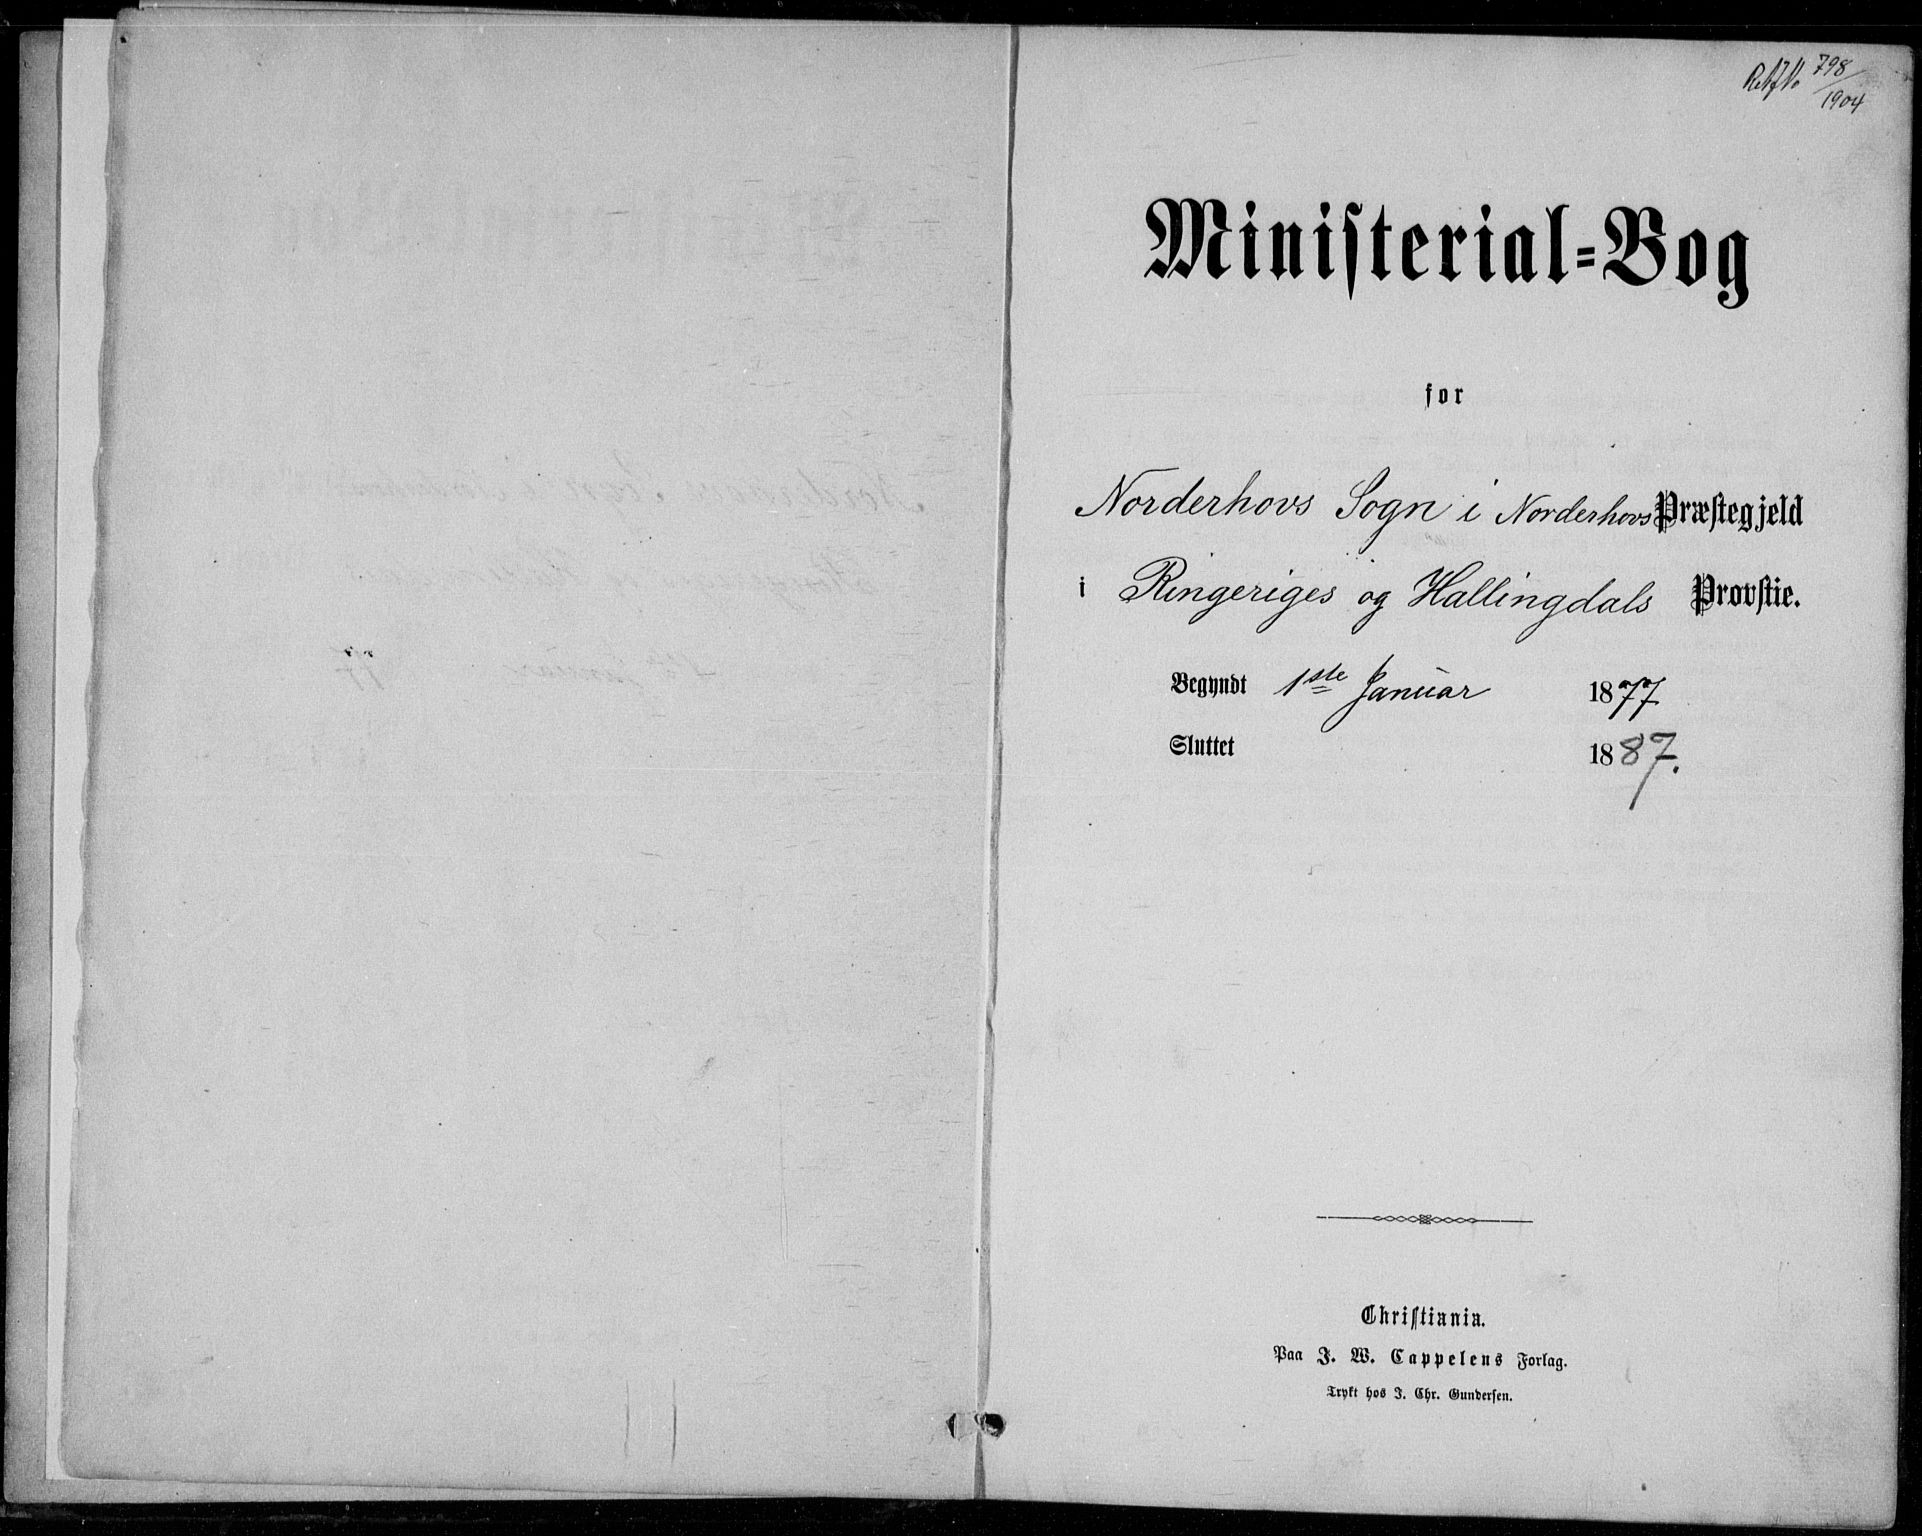 798/1904
Ministerial-Bog
for
Norderhovs Sogn i Norderhovs Præstegjeld
i Ringeriges og Hallingdals Provstie.
Begyndt 1ste Januar 1877
Sluttet 1887.
Christiania.
Paa J. W. Cappelens Forlag.
Trykt hos J. Chr. Gundersen.